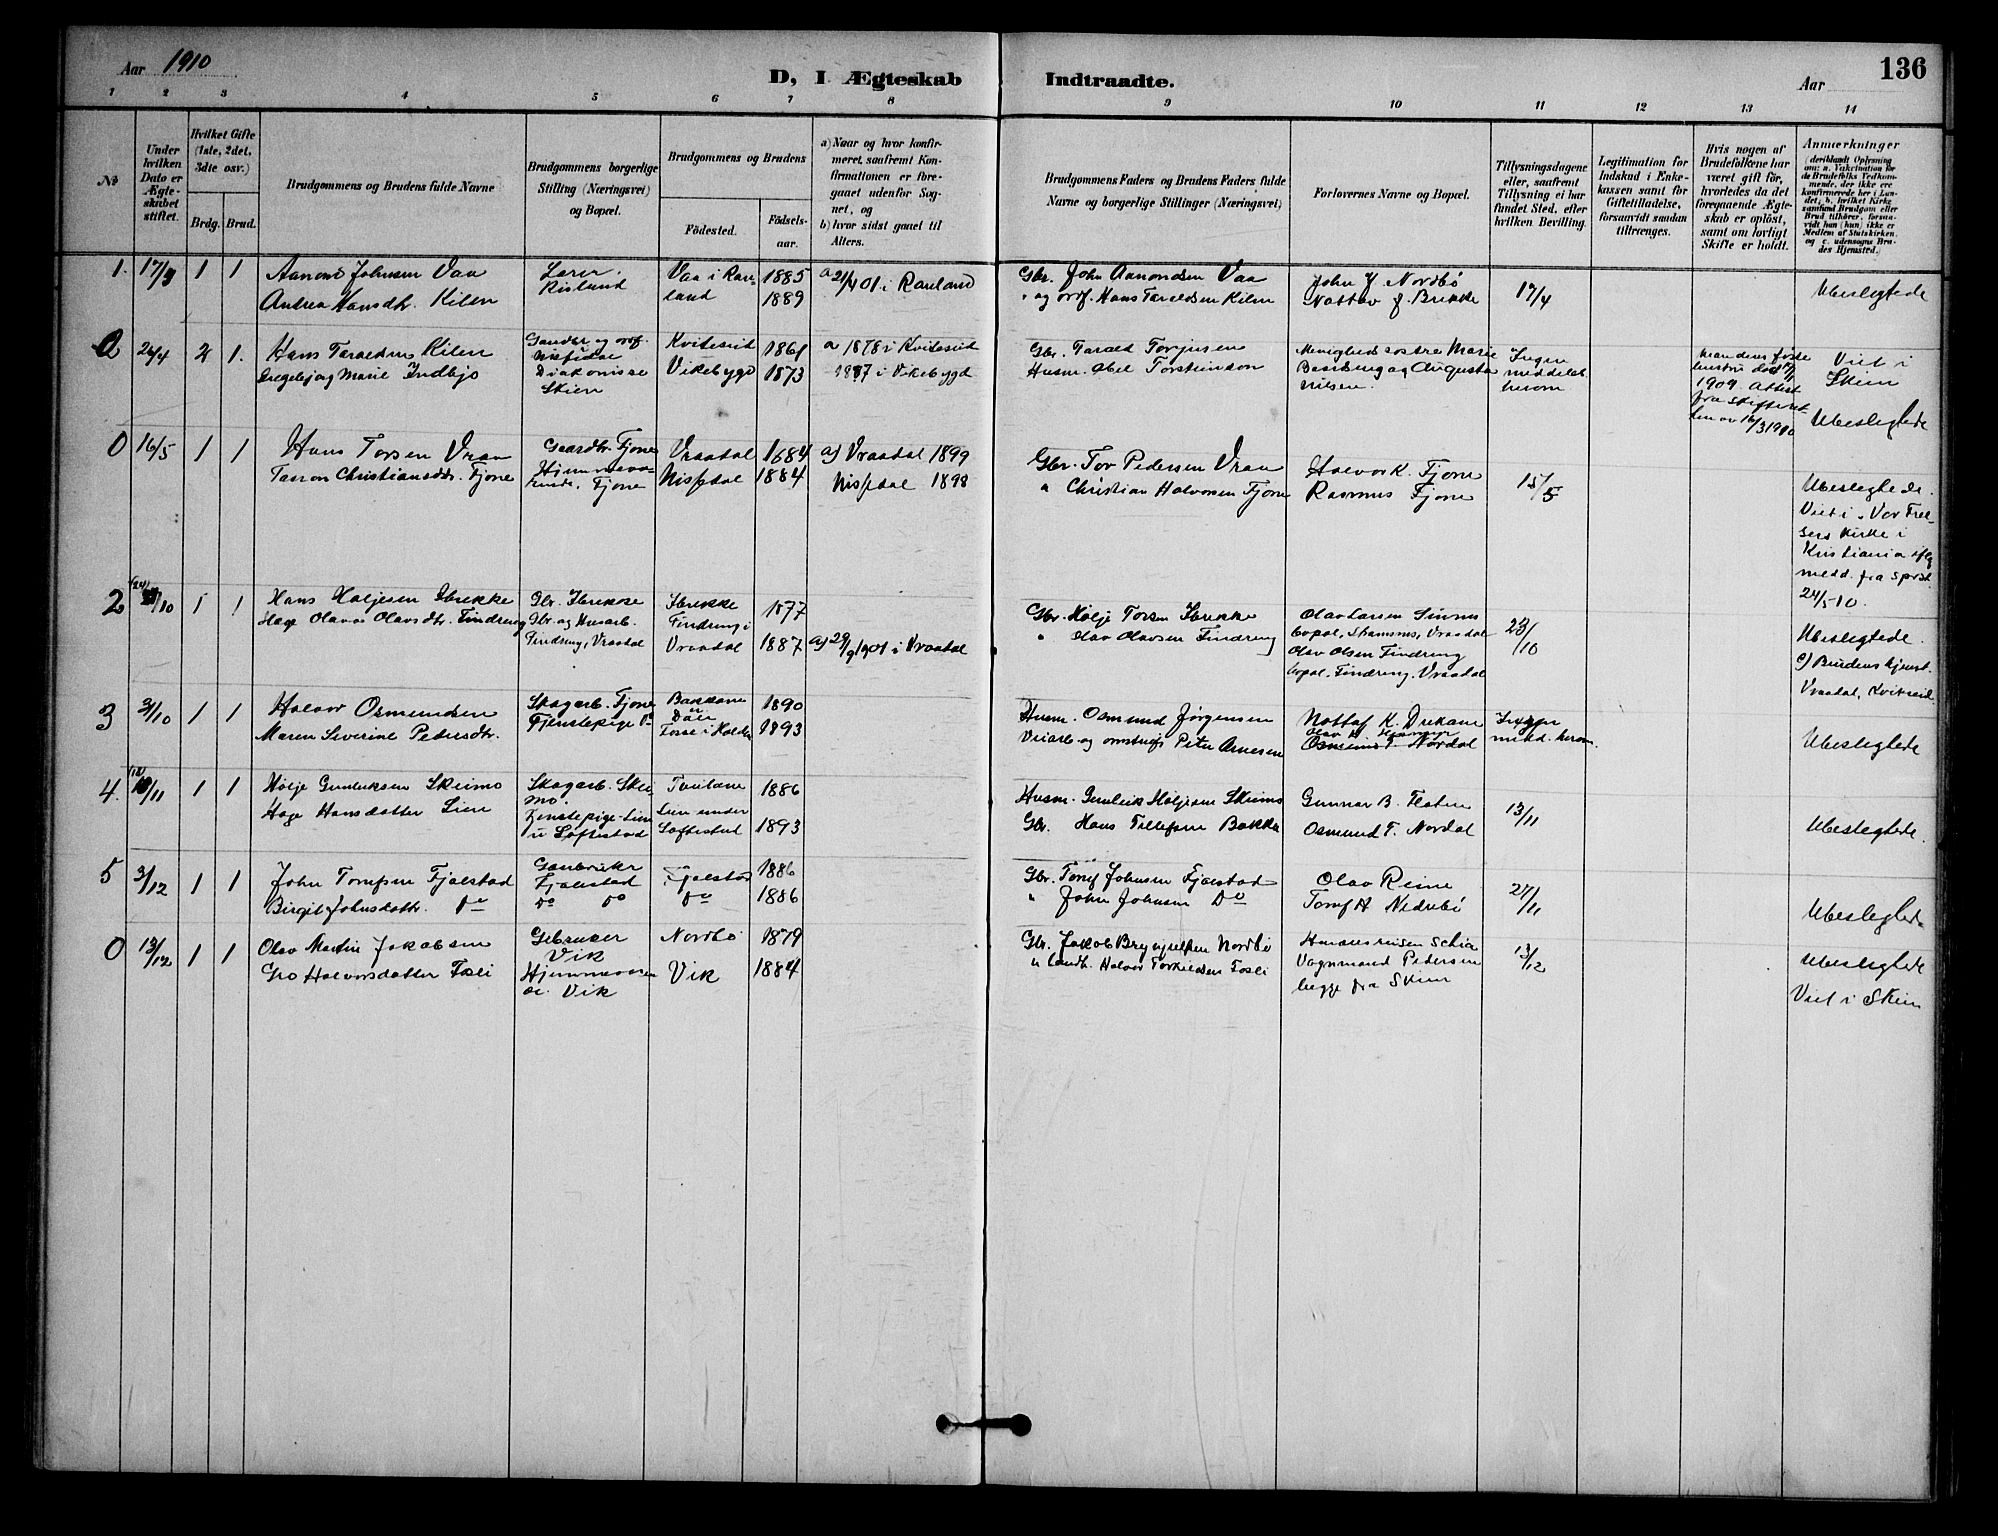 Aar 1910
D, I Ægteskab Indtraadte.
Aar 136
1 2 3 4 5 6 7 8 9 10 11 12 13 14
№
Under hvilken Dato er Ægteskabet stiftet.
Hvilket Gifte (1ste, 2det, 3die osv.)
Brdg. Brud.
Brudgommens og Brudens fulde Navne
Brudgommens borgerlige Stilling (Næringsvei) og Bopæl.
Brudgommens og Brudens
Födested.
Födsels-aar.
a) Naar og hvor konfirmeret, saafremt Konfirmationen er foregaaet udenfor Sognet, og
b) hvor sidst gaaet til Alters.
Brudgommens Faders og Brudens Faders fulde Navne og borgerlige Stillinger (Næringsvei)
Forlovernes Navne og Bopæl.
Tillysningsdagene eller, saafremt Tillysning ei har fundet Sted, efter hvilken Bevilling.
Legitimation for Indskud i Enkekassen samt for Giftetilladelse, forsaavidt saadan tiltrænges.
Hvis nogen af Brudefolkene har været gift för, hvorledes da det foregaaende Ægteskab er oplöst, samt om lovligt Skifte er holdt.
Anmærkninger
(deriblandt Oplysning om: a. Vakcination for de Brudefolks Vedkommende, der ikke ere konfirmerede her i Landet; b. hvilket Kirkesamfund Brudgom eller Brud tilhörer, forsaavidt han (hun) ikke er Medlem af Statskirken, og c. udensogns Brudes Hjemsted.)
1. 17/4 1 1 Aanond Johnsen Vaa
Andrea Hansdtr. Kilen
Lærer.
Vaa i Rauland
1885
1889
a 21/4 01 i Rauland
Gbr. John Aanondsen Vaa
" og ordf. Hans Taraldsen Kilen
John J Nordbø
Nottov J. Brekke
17/4
Ubeslegtede
26/4 2 1. Hans Taraldsen Kilen
Ingebjørg Marie Indbjo
Gaardbr og ordf.
Nissedal
Diakonisse
Skien
Kviteseid
Vikebygd
1861
1873
a 1878 i Kviteseid
1887 i Vikebygd
Gbr. Tarald Torjusen
Husm. Abel Torsteinson
Menighedssøstre Marie
og Augusta
Nilsen.
Ingen
meddelelse
herom
Mandens første
hustru død
1909. Attest
fra skifteret-
ten av 16/3 1910
Viet i
Skien
Ubeslegtede
0 16/5 1 1 Hans Torsen Vraa
Tarron Christiansdtr. Fjone
Gaardbr. Fjone
Hjemmevæ-
rende, Fjone
Vraadal
Nissedal
1884
1884
a) Vraadal 1899
Nissedal 1898
Gbr. Tor Pedersen Vraa
" Christian Halvorsen Fjone
Halvor K. Fjone
Rasmus Fjone
15/5
Ubeslegtede.
Viet i "Vor Frel-
sers Kirke i
Kristiania iflg
medd. fra sprst.
24/5-10.
2 /10 1 1 Hans Holjesen Ibrekke
Hæge Olava Olavsdtr. Findreng
Gbr. Ibrekke
Gbr og Husarb.
Findreng, Vraadal
Ibrekke
Findreng i
Vraadal
1877
1887
a) 29/9 1901 i Vraadal
Gbr. Holje Torsen Ibrekke
" Olav Olavsen Findreng
Olav Larsen
bopæl, Vraadal
Olav Olsen Findreng
bopæl, Findreng, Vraadal
23/10
Ubeslegtede.
c) Brudens hjemst.
Vraadal, Kviteseid
3 3/10 1 1 Halvor Osmundsen
Maren Severine Pedersdtr.
Skogarb. Fjone
Tjenstepige Do
1890
1893
Husm. Osmund Jørgensen
Peter Arnesen
Nottof K. Drekane
Osmund T. Nordal
Ingen
medd. herom.
Ubeslegtede
4. /11 1 1 Holje Gunleiksen Skeimo
Hæge Hansdatter Lien
Skogarb. Skei-
mo.
Tjenstepige-Lien
u Loftestad
Lien under
Loftestad
1886
1893
Husm. Gunleik Holjesen Skeimo
Gbr. Hans Tellefsen Bakka
Gunnar B. Flaten
Osmund T. Nordal
13/11
Ubeslegtede.
5 3/12 1 1 John Tomfsen Fjalestad
Birgit Johnsdatter. Do
Gaardbruker
Fjalestad
Do Do
Fjalestad
Do
1886
1886
Gbr. Tomf Johnsen Fjalestad
" John Johnsen Do
Olav Reine
Tomf A Nedrebø
27/11
Ubeslegtede
0 13/12 1 1 Olav Martin Jakobsen
Gro Halvorsdatter Fosli
Gbruker
Vik
Hjemmevær-
ende. Vik
Nordbø
Vik
1879
1884
Gbr. Jakob Brynjulfsen Nordbø
" landh. Halvor Torkildsen Fosli
Vognmand Pedersen
begge fra Skien
13/12
Ubeslegtede
Viet i Skien